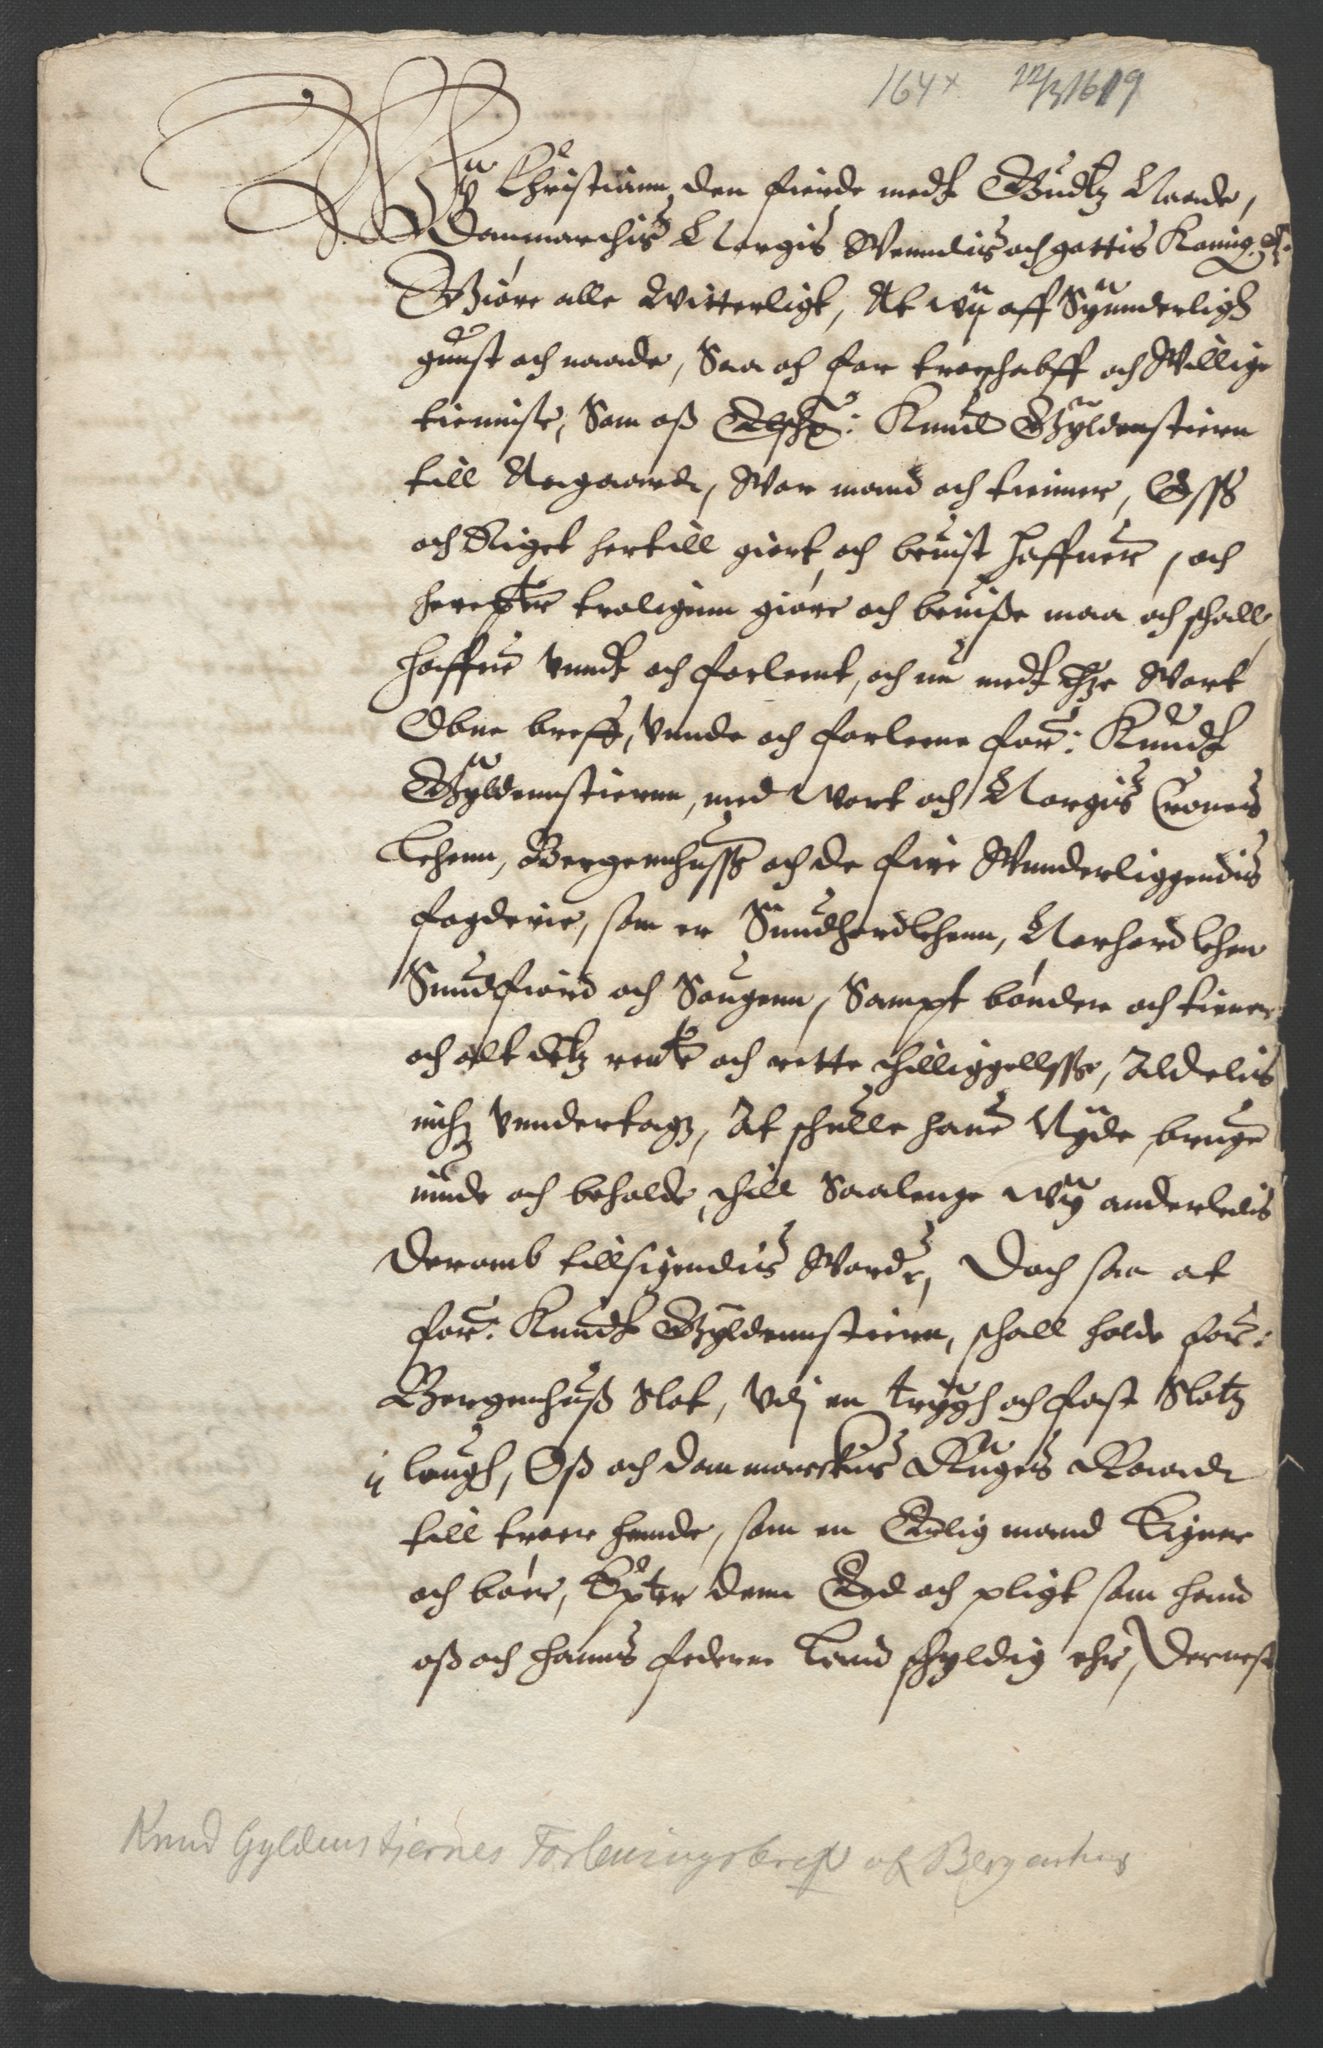 164x 22/3 1619
Wÿ Christiann den fierde medt Gudtz Naade,
Danmarchis Norgis Wenndis och gottis Konning, etc.
Giøre alle Witterligt, At wÿ aff Sÿnnderlig
gunst och naade, Saa och for troeschabff och Willige
tienniste, Som oß Elsch: Knud Gÿldenstiern
till Aagaardt, Wor mand och tienner, Osß
och Riget hertill giort, och beuist haffuer, och
herepter troligenn giøre och beuiße maa och schall,
haffue vundt och forlennt, och nu medt thz Wort
Obne breff, vnnde och forlenne for: Knudt
Gÿldennstiernn, med Wort och Norgis Cronnis
Lehenn, Bergennhusß och de fire Wnnderliggendis
fogderie, som er Sundhordlehenn, Norhordlehen
Sundfiord och Sougenn, Sampt bønder och tiener
och alt dtz rennte och rette thilliggellsße, Aldelis
inthz vnndertagz, At schulle haue Nÿde, bruge
inde och beholde, thill Saalenge Wÿ anderledis
Deromb tillsigendis Worde, Doch saa at
for: Knudt Gÿldennstiernn, schall holde for:
Bergenhuß Slot, Vdj en trÿgh och fast Slotz
lough, Oß och dannmarckis Rigis Raad
till troer hennde, som en Erlig mand Eigner
och bør, Epter denn Eed och pligt som hannd
oß och hanns federne Lannd schyldig ehr, Dernest
Knud Gyldenstjernes Forleningsbref af Bergenhus